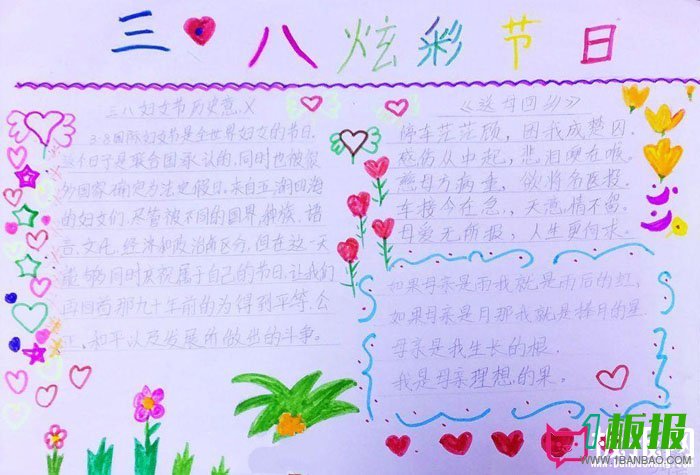 三八炫彩节日
三八妇女节历史意义
3·8国际妇女节是全世界妇女的节日.
这个日子是联合国承认的,同时也被很
多国家确定为法定假日.来自五湖四海
的妇女们,尽管被不同的国界,种族、语
言、文化、经济和政治所区分,但在这一天
能够同时庆祝属于自己的节日.让我们
再回首那九十年前的为得到平等、公
正、和平以及发展所做出的斗争。
《送母回乡》
停车茫茫顾，因我成楚囚.
感伤从中起，悲泪哽在喉.
慈母方病重，欲将名医投.
车接今在急，天竟情不留.
母爱无所报，人生更何求.
如果母亲是雨我就是雨后的虹,
如果母亲是月那我就是捧月的星.
母亲是我生长的根.
我是母亲理想的果。
1板报
WWW.1BANBAO.COM